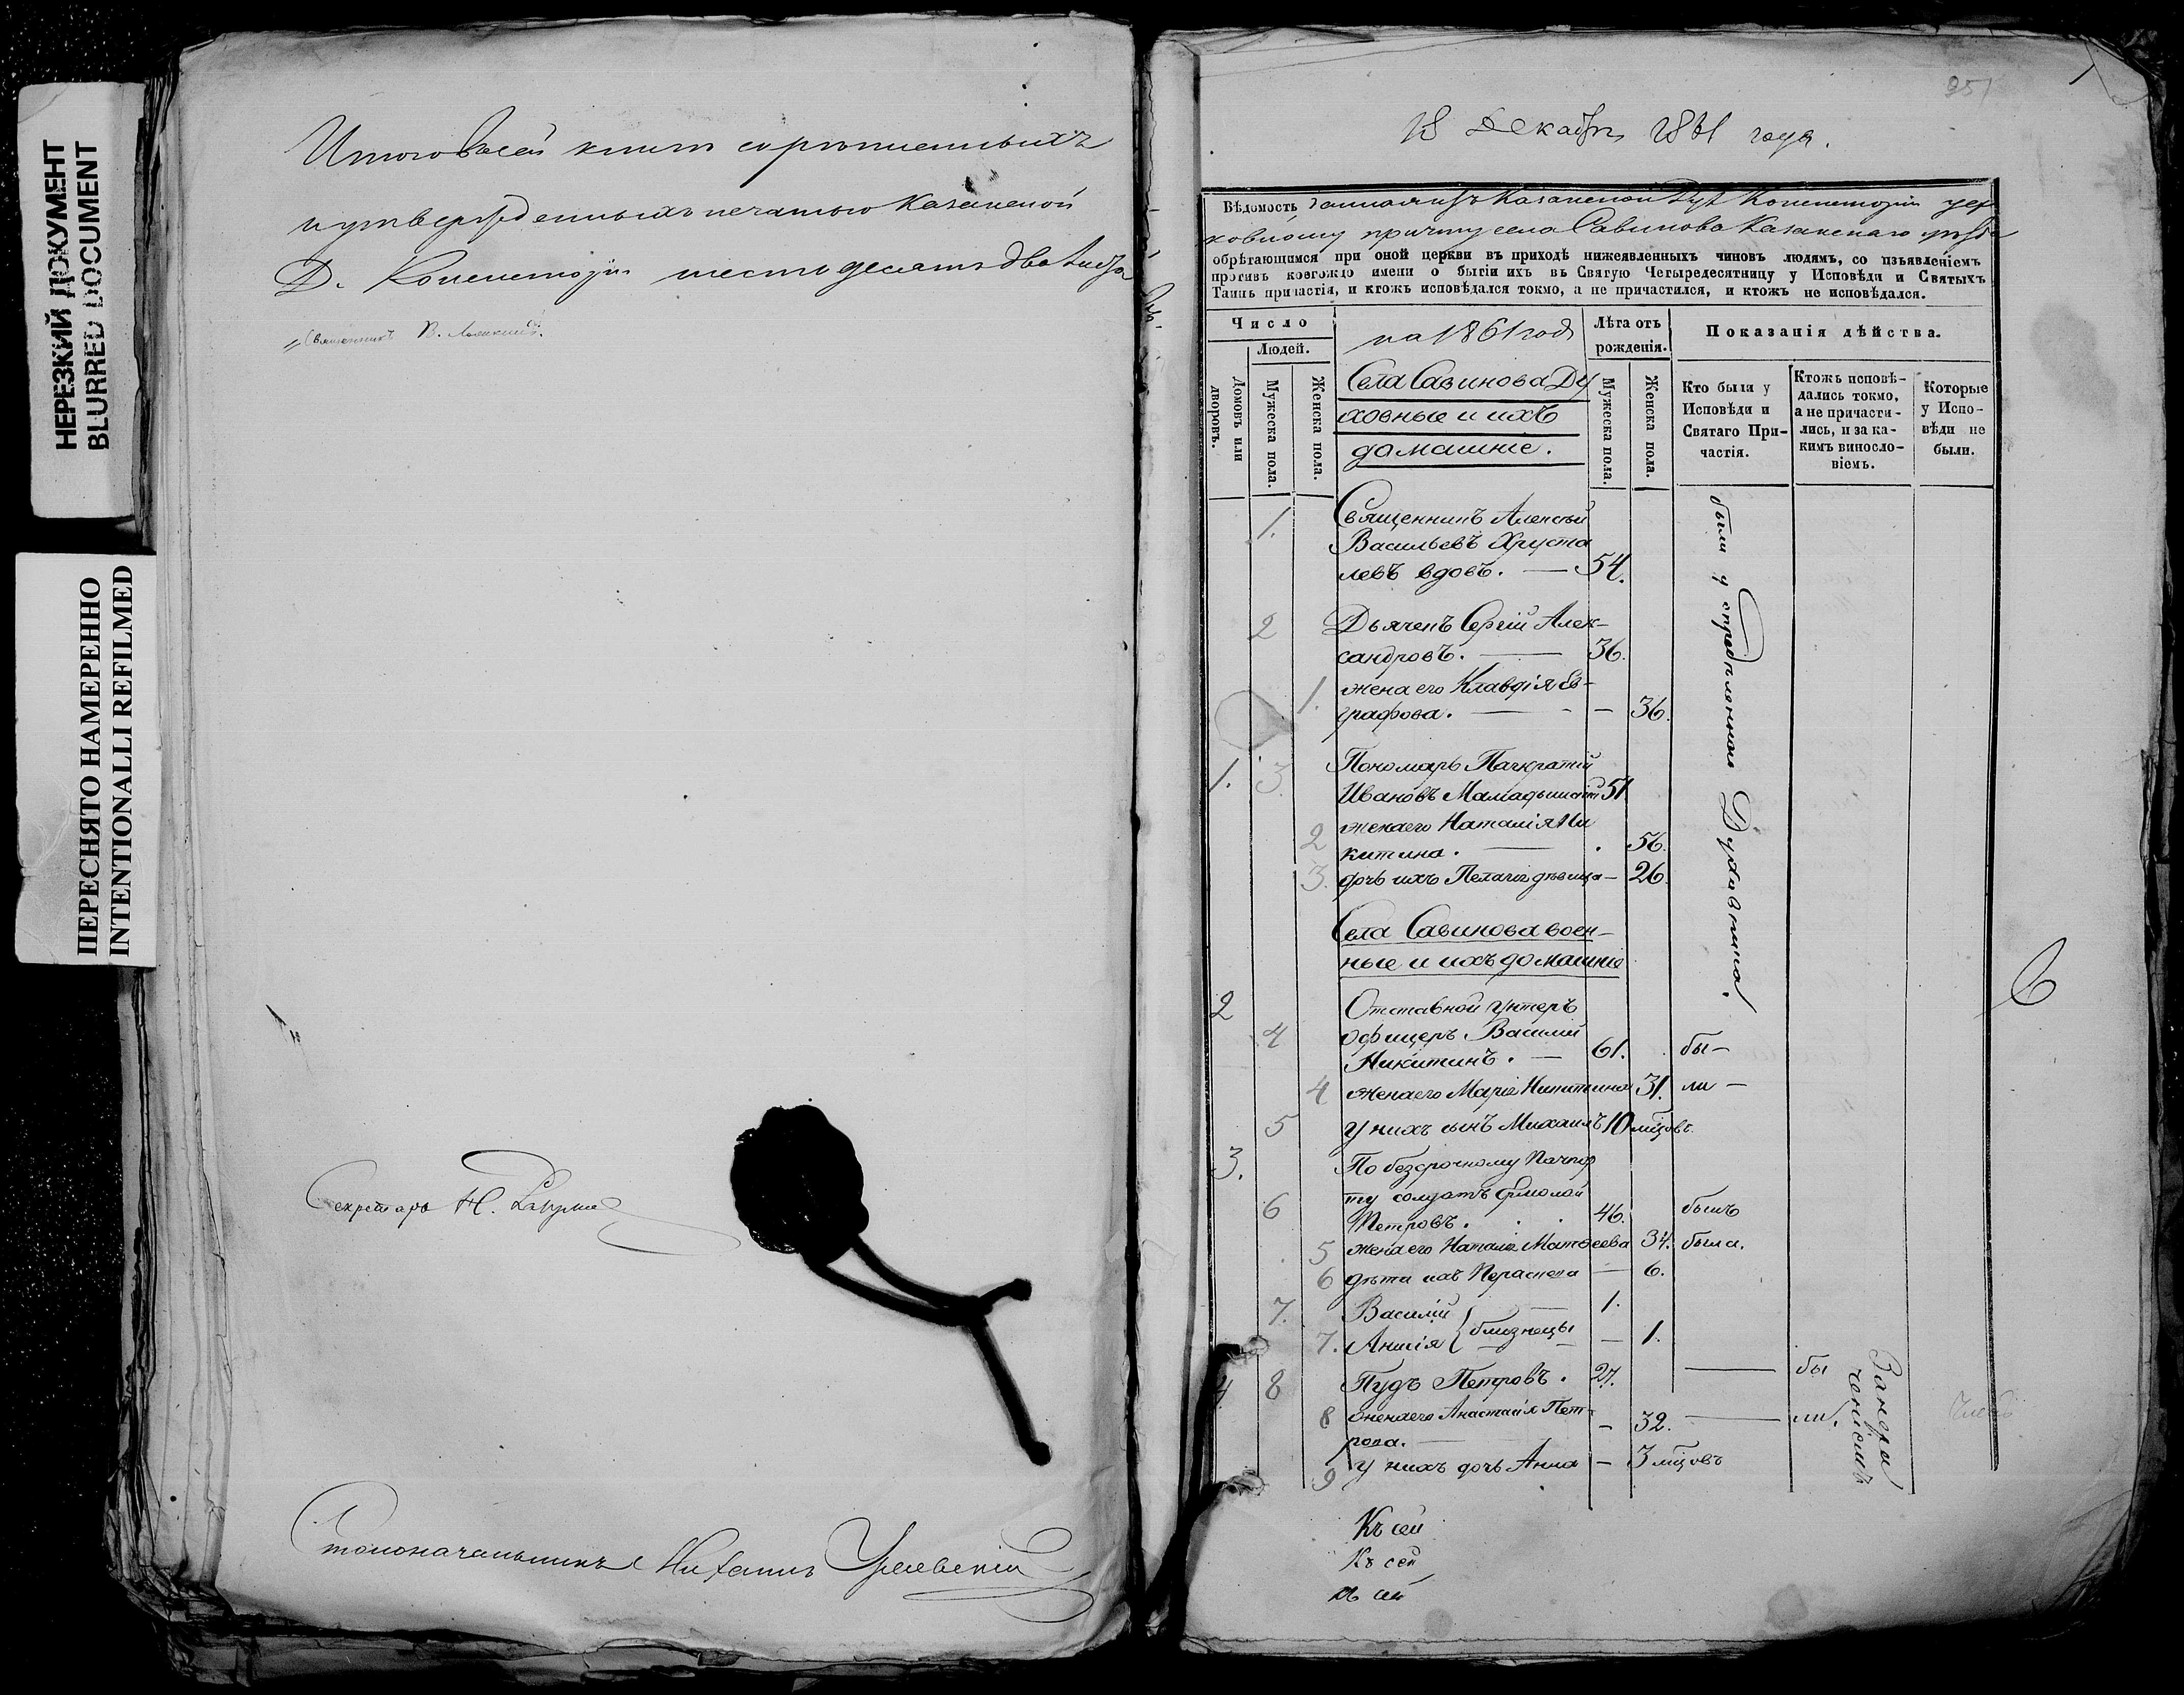 НЕРЕЗКИЙ ДОКУМЕНТ
BLURRED DOCUMENT
ПЕРЕСНЯТО НАМЕРЕННО
INTENTIONALLI REFILMED
Итого въ сей книгѣ скрѣпленныхъ
и утвержденныхъ печатью Казанской
Д. Консисторіи шестьдесятъ два листа
Священникъ В.
Секретарь Н.
Столоначальникъ
951
18 Декабря 1861 года.
Вѣдомость данная изъ Казанской Дух. Консисторіи цер
ковному причту села Савинова Казанскаго уѣзда
обрѣтающимся при оной церкви въ приходѣ нижеявленныхъ чиновъ людямъ, со изъявленіемъ
противъ коегождо имени о бытіи ихъ въ Святую Четыредесятницу у Исповѣди и Святыхъ
Таинъ причастія, и ктожъ исповѣдался токмо, а не причастился, и ктожъ не исповѣдался.
Число
Людей.
Домовъ или дворовъ.
Мужеска пола.
Женска пола.
на 1861 год
Села Савинова Ду
ховные и ихъ
домашніе.
Лѣта отъ рожденія.
Мужеска пола.
Женска пола.
Показанія дѣйства.
Кто были у Исповѣди и Святаго При-
частія.
Ктожъ исповѣ-
дались токмо,
а не причасти-
лись, и за ка-
кимъ винословіемъ.
Которые у Испо-
вѣди не были.
1. Священникъ Алексѣй
Васильевъ Хруста
левъ вдовъ. — 54.
2 Дьячекъ Сергій Алек-
сандровъ. — 36.
1. жена его Клавдія Ев-
графова. — 36.
1. 3. Пономарь Панкратій
Ивановъ Мамадышскій 51
2 жена его Наталія Ни
китина. — 56.
3. дочь ихъ Пелагія дѣвица — 26.
были у
Духовника.
Села Савинова воен-
ные и ихъ домашніе
2 Отставной унтеръ
4 офицеръ Василій
Никитинъ. — 61. бы-
4 жена его Марія Никитина 31. ли —
5 у нихъ сынъ Михаилъ 10 мѣсцовъ.
3. По безсрочному пачпор
6 ту солдатъ Ермолай
Петровъ. 46. былъ
5 жена его Наталія Матвеева 34. была.
6 дѣти ихъ Параскева — 6.
7. Василій — 1.
7. Анисія } близнецы — 1.
4 8 Пудъ Петровъ. 27. — бы
8 жена его Анастасія Пет-
рова. — 32. — ли.
9 у нихъ дочь Анна — 3 мѣсцовъ
6
Къ сей
Къ сей
къ сей